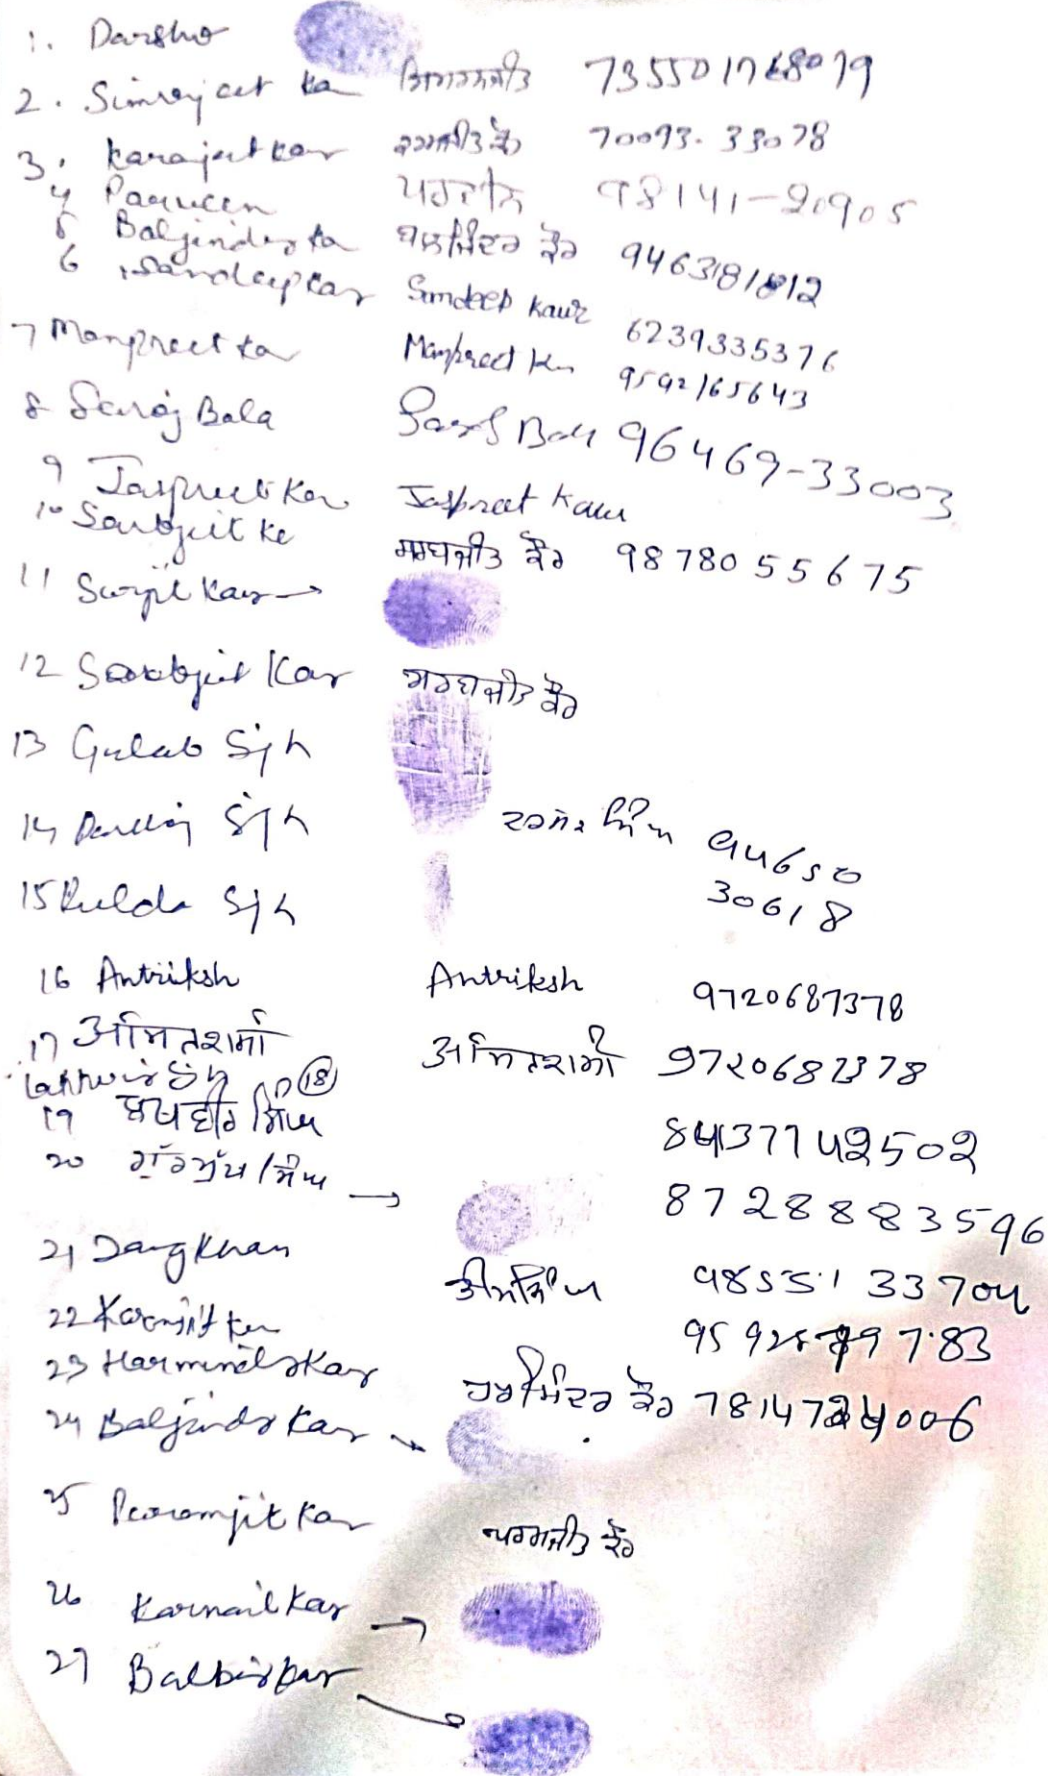 1. Darsho
2. Simrajeet ka ਸਿਮਰਨਜੀਤ
3. Karajeet kar ਕਰਮਜੀਤ ਕੌ 70093-33078
4 Parveen ਪਰਵੀਨ 98141-20905
5 Baljinder ka ਬਲਜਿੰਦਰ ਕੌਰ
6 Sandeep kar Sandeep Kaur 6239335376
7 Manpreet ka Manpreet Kr 9592165643
8 Saroj Bala Saroj Bala 96469-33003
9 Jaspreet Kar Jaspreet Kaur
10 Sarbjeit Ka ਸਰਬਜੀਤ ਕੌਰ 98780 55675
11 Surjit Kaur
12 Sarabjit Kar ਸਰਬਜੀਤ ਕੌਰ
13 Gulab Sjh
14 Sjh ਸਿੰਘ 94650
30618
15 Rulda Sjh
16 Antriksh Antriksh 9720687378
17 अमित शर्मा अमित शर्मा 9720687378
Lakhvir Sjh (18)
19 ਲਖਵੀਰ ਸਿੰਘ 8437742502
20 ਗੁਰਮੁੱਖ ਸਿੰਘ 8728883596
21 Khan 98551 33704
22 Karmjit kar
23 Harminder Kar ਹਰਮਿੰਦਰ ਕੌਰ
24 Baljinder Kar
25 Paramjit Kar ਪਰਮਜੀਤ ਕੌਰ
26 Karnail Kar
27 Balbir kar